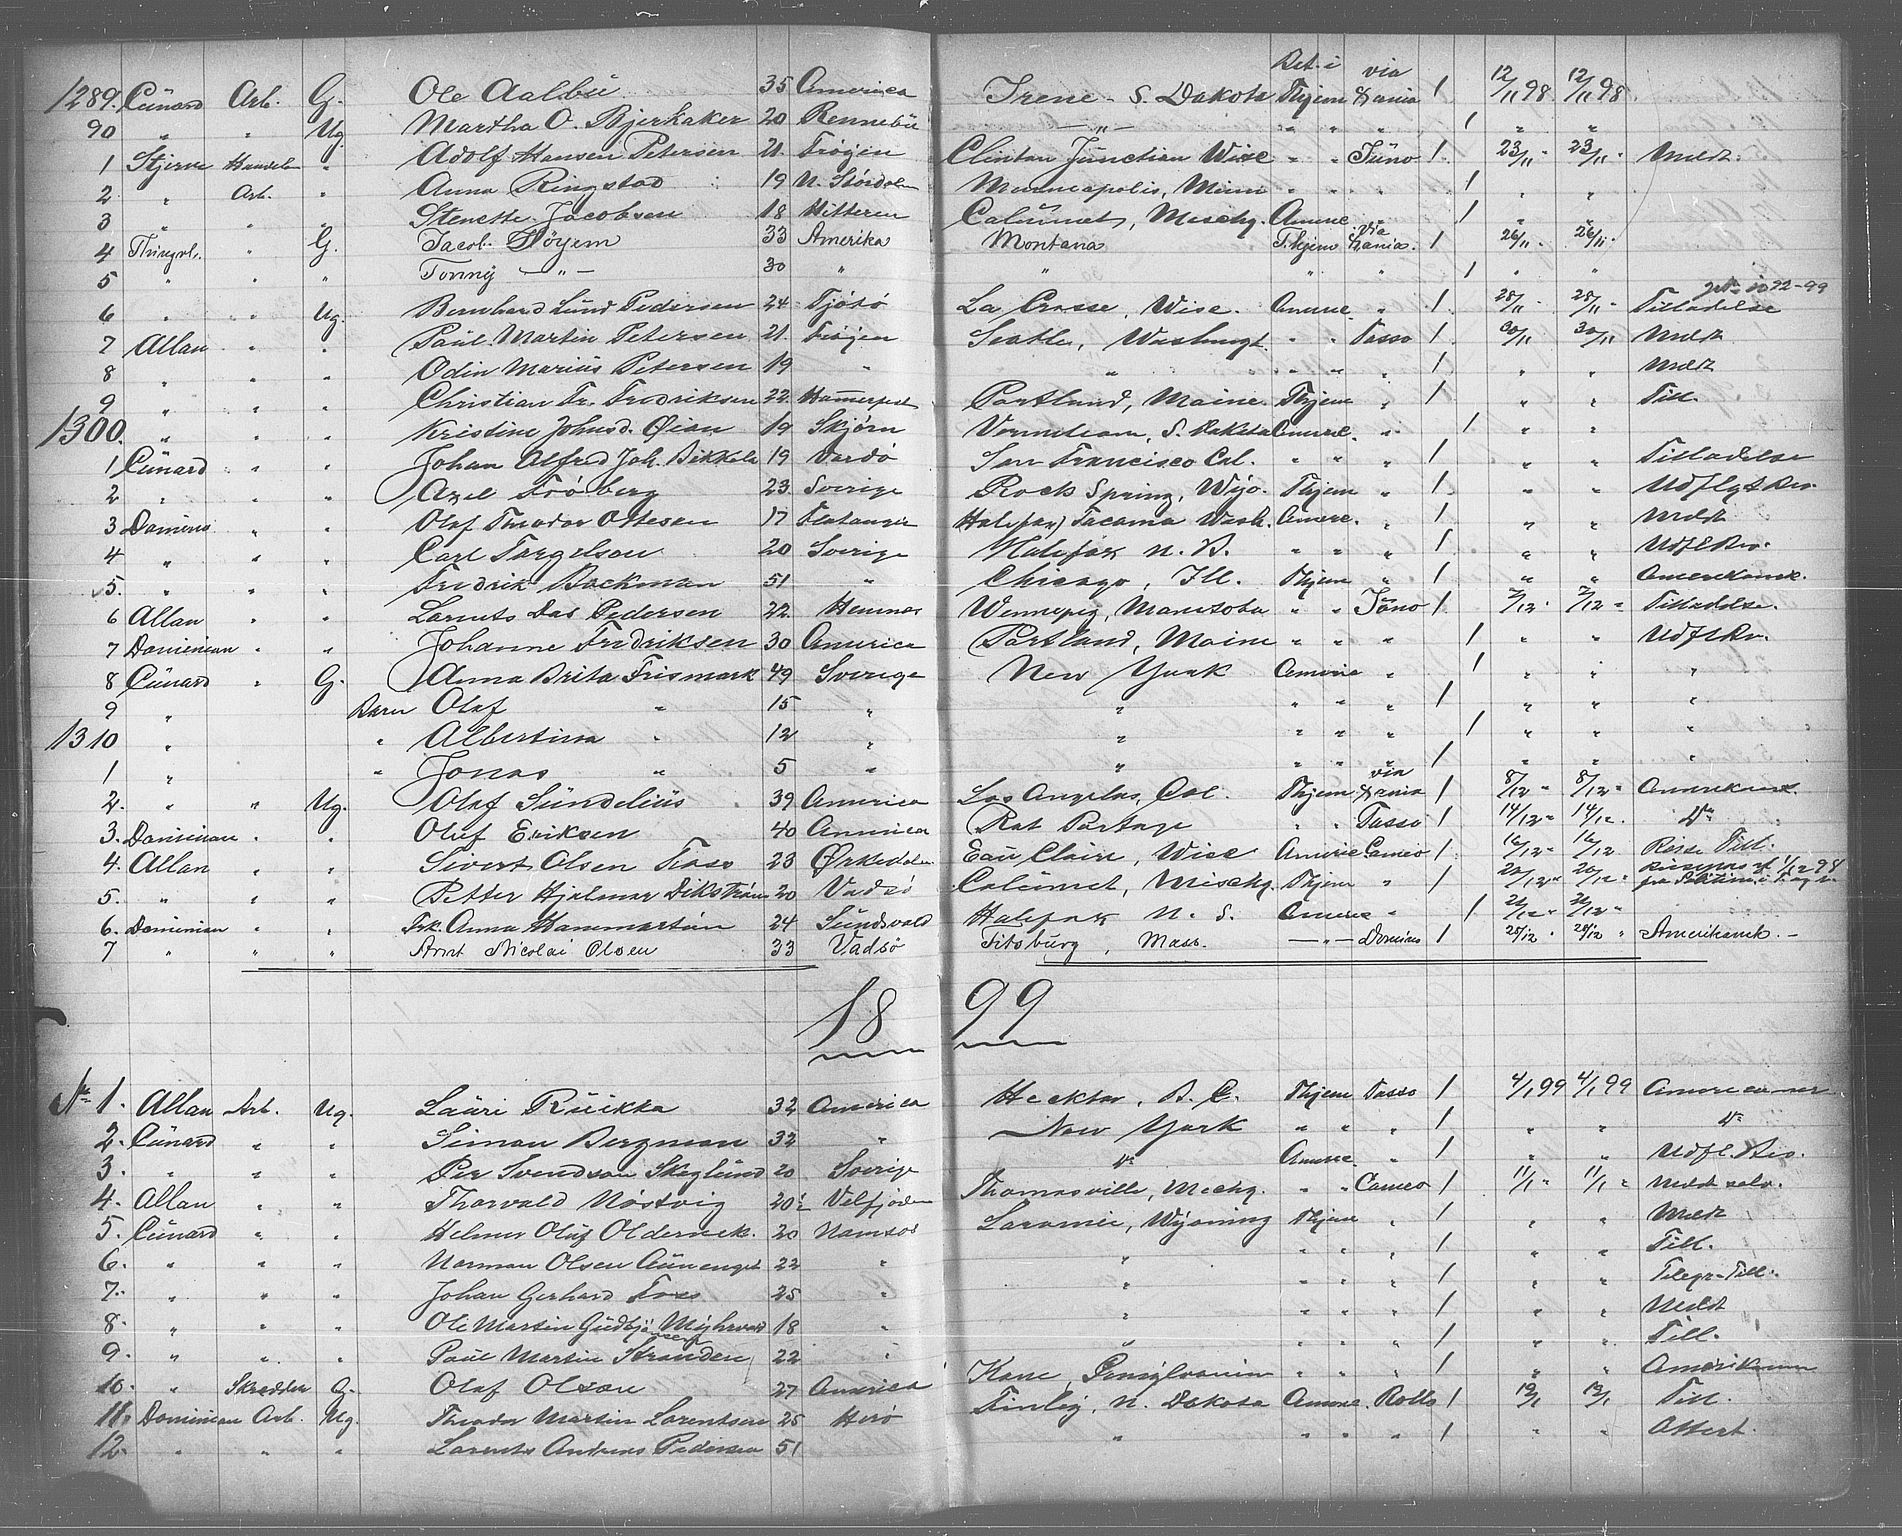 Bet. i via
1289. Cünard Arb. G. Ole Aalbü 35 America Irene - S. Dakota Thjem Xania 1 12/11 98 12/11 98
90 " " Ug. Martha O. Bjerkaker 20 Rennebü — " — " " " 1 " "
1 Stjerne " Adolf Hansen Petersen 21. Frøyen Clinton Junction Wisc " " Juno 1 23/11 " 23/11 " Meldt.
2 " Arb. " Anna Ringstad 19 N. Stördalen Minneapolis, Minn " " " 1 " "
3 " " " Stenette Jacobsen 18 Hitteren Calümet, Mischg. Amerc " 1 " "
4 Thingvl. " G. Jacob Høyem 33 Amerika Montana T.hjem via Xania. 1 26/11 " 26/11 "
5 " " " Tonny — " — 30 " " " " " 1 " "
6 " " Ug. Bernhard Lund Pedersen 24 Tjøtö La Crosse, Wisc. Amerc. " 1 28/11 " 28/11 " Tilladelse
7 Allan " " Paül Martin Petersen 21. Frøyen Seatle, Washingt. " " Tasso 1 30/11 30/11 Meldt
8 " " " Odin Marius Petersen 19 " " " " " 1 " " Meldt
9 " " " Christian Fr. Fredriksen 22. Hammerfest Portland, Maine. Thjem " 1 " " Till.
1300. " " " Kristine Johnsd. Øian 19 Skjørn S. Dakota Amerc. " 1 " "
1 Cünard " " Johan Alfred Joh. Bikkela 19 Vardö San Francisco Cal. " " " 1 " " Tilladelse
2 " " " Axel Fröberg 23. Sverige Rock Spring, Wyo. Thjem " 1 " " Udflytbev.
3 Domin. " " Olaf Theodor Ottesen 17 Flatanger Halifax) Tacoma Wash. Amerc. " 1 " " Meldt
4 " " " Carl Torgelson 20 Sverige Halifax N. B. " " " 1 " " Udfl.Bev.
5. " " " Fredrik Backman 51 " Chicago, Ill. Thjem " 1 " " Amerikansk.
6 Allan " " Lornts Pedersen 22. Hemnes Winnepeg, Manitoba " " Juno 1 7/12 " 7/12 " Tilladelse.
7 Dominian " " Johanne Fredriksen 30 America Portland, Maine " " " 1 " " Udfl.Bv.
8 Cünard " G. Anna Brita Frismark 49 Sverige New York Amerie " 1 " " "
9 " Børn Olaf " 15 " " " " " 1 " " "
1310 " " Albertina " 12 " " " " " 1 " " "
1 " " Jonas " 5 " " " " " 1
2. " " Ug. Olaf Sündeliüs 39 America Los Angelos, Cal. Thjem via Xania 1 8/12 " 8/12 " Amerikansk.
3. Dominian " " Olüf Eriksen 40 America Rat Portage " " Tasso 1 14/12 " 14/12. do
4. Allan " " Sivert Olsen 23 Ørkedalen Eaü Claire, Wisc Amerie Cameo 1 16/12 " 16/12 Till.
5. " " " Petter Hjalmar Dikström 20 Vadsö Calümet, Mischg. Thjem " 1 20/12 " 20/12 "
6. Dominian " " Frk. Anna Hammarström 24 Sündsvald Halifax N. S. Amerie " 1 21/12 " 21/12 "
7 " " " Arnt Nicolai Olsen 33 Vadsö Fitsburg, Mass. — " — Domino 1 28/12 " 28/12 " Amerikansk. -
18 99
No 1. Allan Arb. Ug. Lauri Rüikka 32 America Hecktor, B. C. Thjem Tasso 1 4/1 99 4/1 99
2. Cünard " " Siman Bergman 32 " New York " " " 1 " " do
3. " " " Per Svendson Skeglünd 20 Sverige do Amerc. " 1 " " Udfl. Bev.
4. Allan " " Thorvald Nöstvig 20½ Velfjorden Thomasville, Mechg. " " Cameo 1 11/1 " 11/1 " Meldt selv.
5. Cünard " " Helmer Olüf Olderneck. 20 Namsos Laramie, Wyoming Thjem " 1 " " Meldt
6. " " " Norman Olsen Aünenget 22 " " " " " 1 " " Till.
7. " " " Johan Gerhard Foss 25 " " " " " 1 " " Telegr. Till.
8. " " " Ole Martin Güdbjörnsen 18 " " " " " 1 " " Meldt
9. " " " Paül Martin Stranden 22 " " " " " 1 " " Till.
10. " Skrædder G. Olaf Olson 27 America Kane, Pensylvanien " " " 1 " " Amerikaner
11. Dominian Arb. Ug. Theodor Martin Lorentsen 25 Herö Finley, N. Dakota Amerc. Rollo 1 12/1 12/1 Till.
12. " " " Lorents Andreas Pedersen 51 " " " " 1 " " Attest.